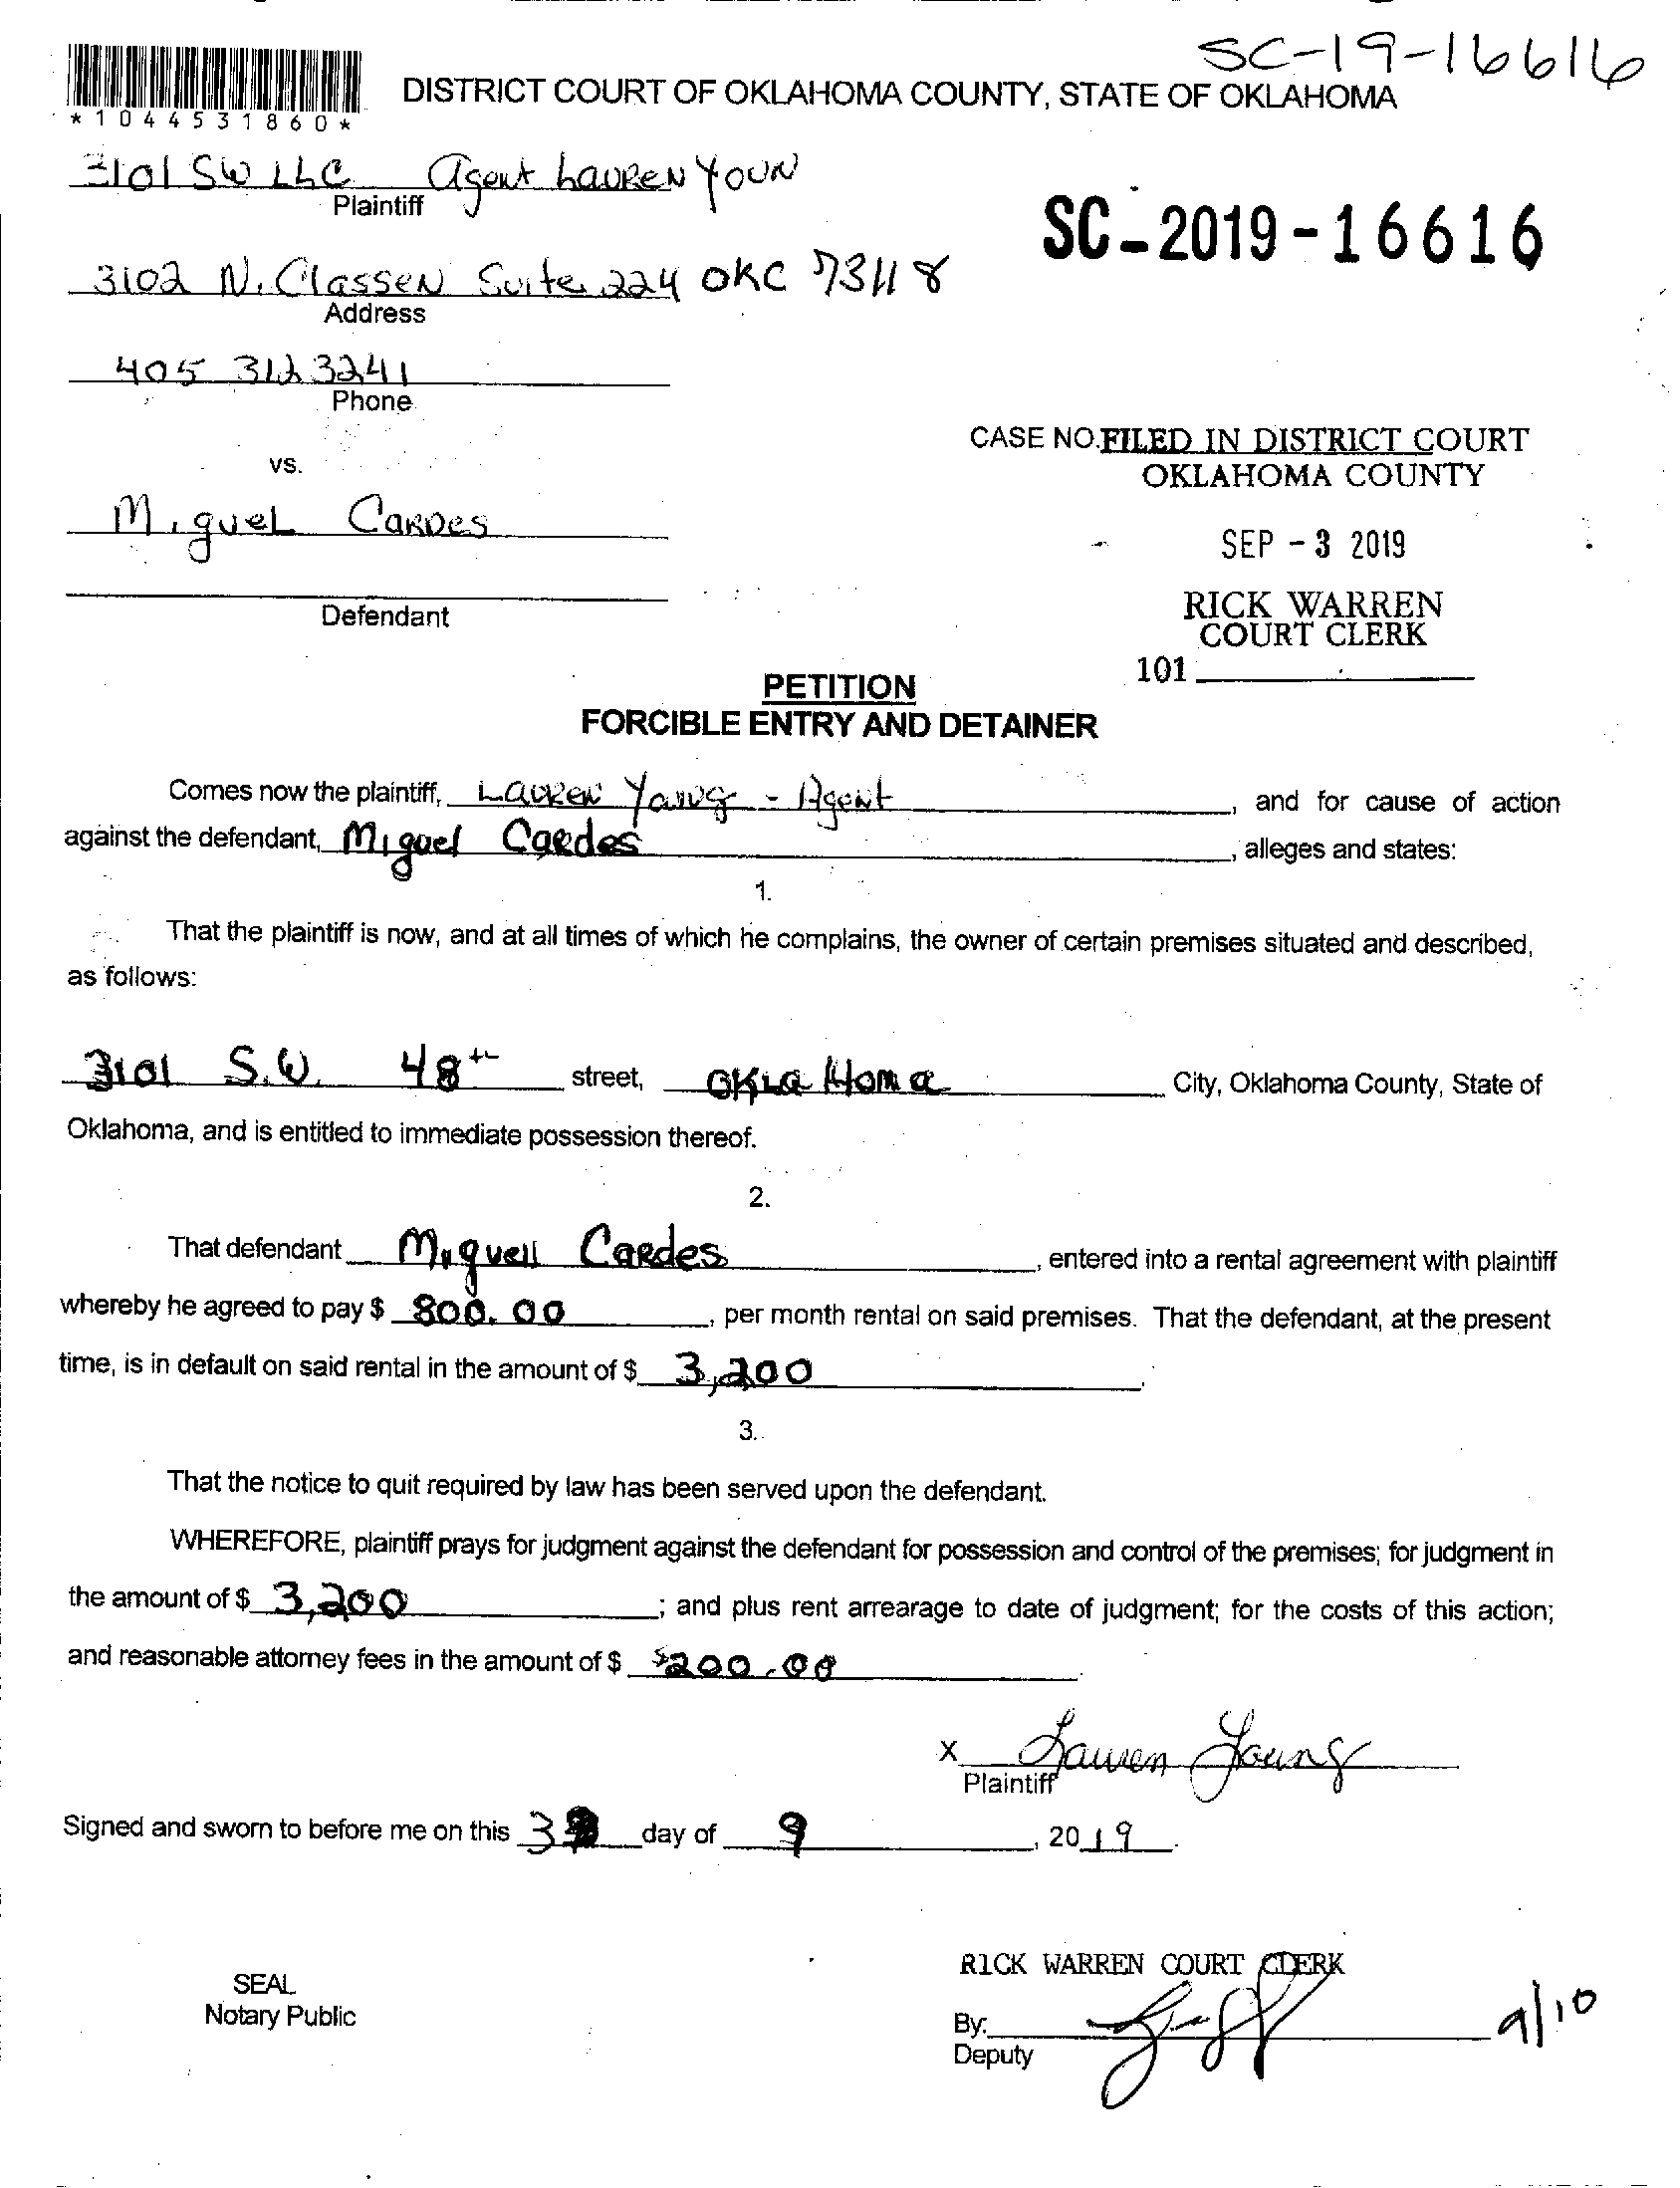 SC-19-16616
*1044531860*
DISTRICT COURT OF OKLAHOMA COUNTY, STATE OF OKLAHOMA
3101 SW LLC Agent Lauren Youn
Plaintiff
SC-2019-16616
3102 N. Classen Suite 224 OKC 73118
Address
405 312 3241
Phone
CASE NO. FILED IN DISTRICT COURT
OKLAHOMA COUNTY
vs.
Miguel Cardes
SEP - 3 2019
Defendant
RICK WARREN
COURT CLERK
101
PETITION
FORCIBLE ENTRY AND DETAINER
Comes now the plaintiff, Lauren Young - Agent, and for cause of action
against the defendant, Miguel Cardes, alleges and states:
1.
That the plaintiff is now, and at all times of which he complains, the owner of certain premises situated and described,
as follows:
3101 S.W. 48th street, Oklahoma City, Oklahoma County, State of
Oklahoma, and is entitled to immediate possession thereof.
2.
That defendant Miguell Cardes, entered into a rental agreement with plaintiff
whereby he agreed to pay $ 800.00, per month rental on said premises. That the defendant, at the present
time, is in default on said rental in the amount of $ 3,200.
3.
That the notice to quit required by law has been served upon the defendant.
WHEREFORE, plaintiff prays for judgment against the defendant for possession and control of the premises; for judgment in
the amount of $ 3,200; and plus rent arrearage to date of judgment; for the costs of this action;
and reasonable attorney fees in the amount of $ $200.00
x Lauren Young
Plaintiff
Signed and sworn to before me on this 3 day of 9, 2019.
RICK WARREN COURT CLERK
SEAL
Notary Public
By:
9/10
Deputy